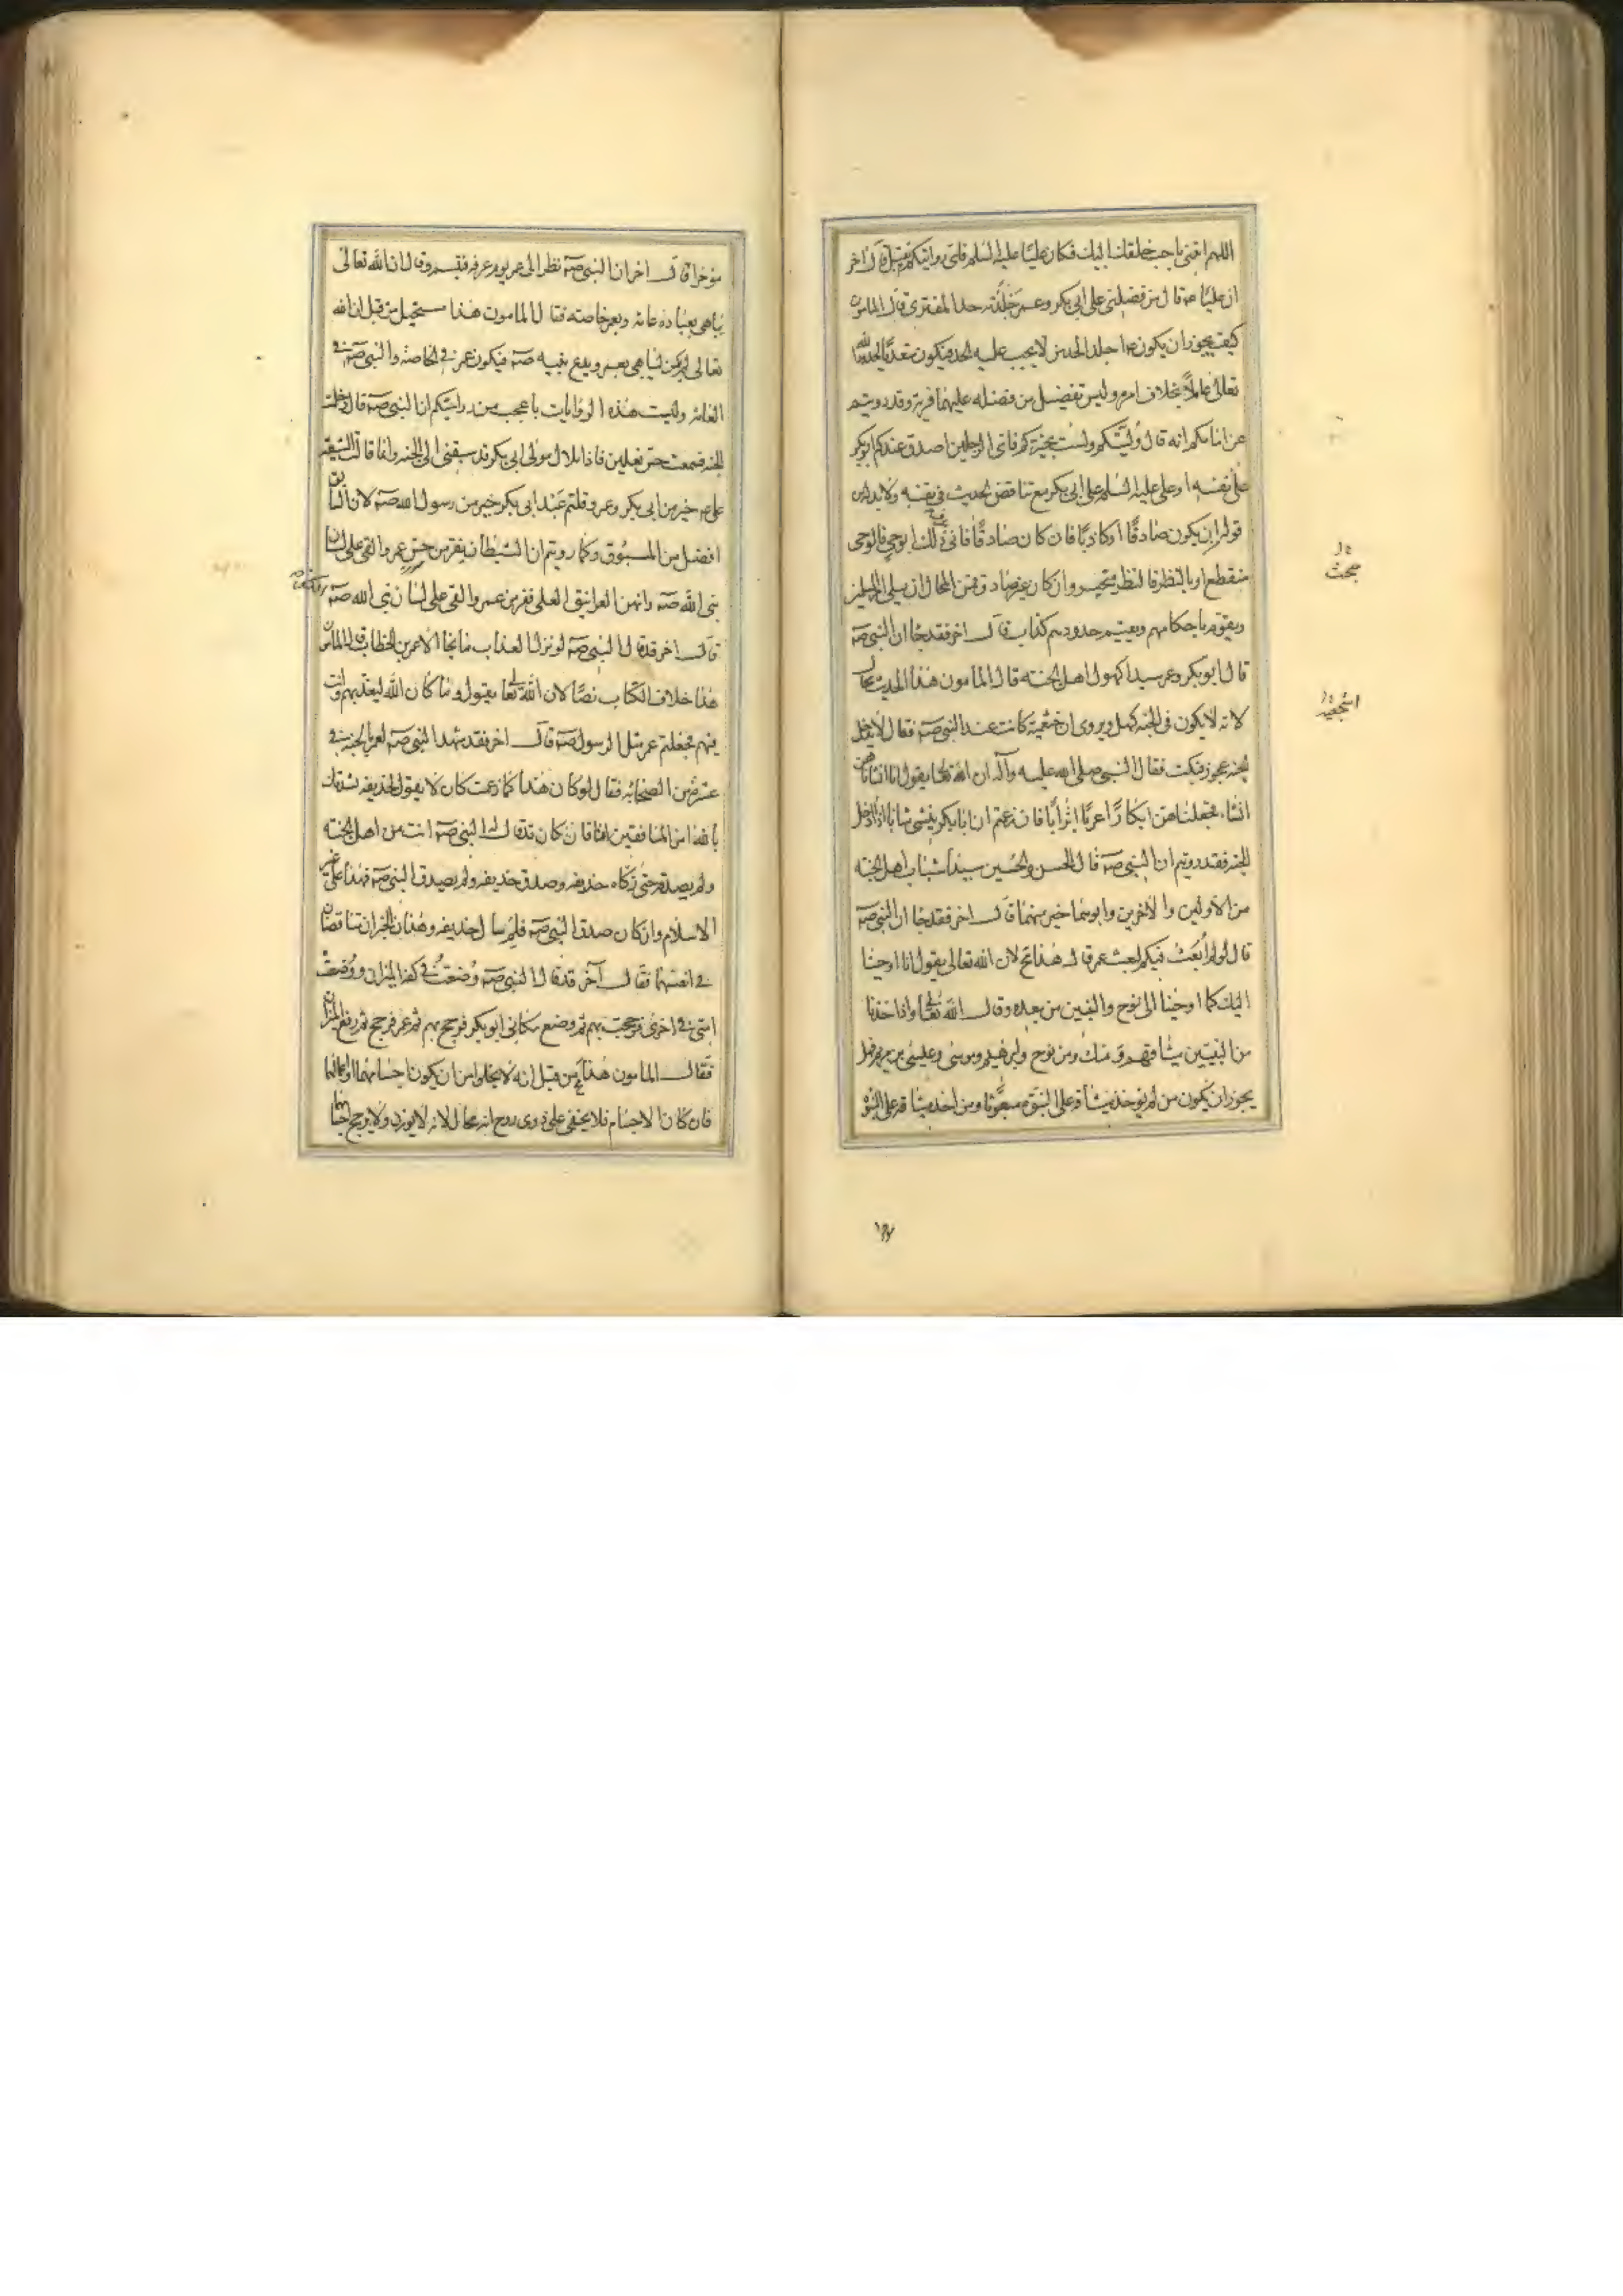 اللهم ايتني باحب خلقك اليك فكان عليا عليه السلم فاي روايتكم تقبل قال اخر
ان عليا ع قال من فضلني على ابي بكر وعمر جلدته حد المفتري قال المامون
كيف يجوز ان يكون ع اجلد الحد من لا يجب عليه الحد فيكون متعديا لحدود الله
تعالى عاملا بخلاف امره وليس تفضيل من فضله عليهما فرية وقد رويتم
عن امامكم انه قال وليتكم ولست بخيركم فاي الرجلين اصدق عندكم ابو بكر
على نفسه او علي عليه السلم على ابي بكر مع تناقض الحديث في نفسه ولا بد له من
قوله ان يكون صادقا او كاذبا فان كان صادقا فاني عرف ذلك ابوحي فالوحي
منقطع او بالنظر فالنظر متحير وان كان غير صادق فمن المحال ان يلي امر المسلمين
ويقوم باحكامهم ويقيم حدودهم كذاب قال اخر فقد جا ان النبي صه
قال ابو بكر وعمر سيدا كهول اهل الجنة قال المامون هذا الحديث محال
لانه لا يكون في الجنة كهل ويروى ان اشجعية كانت عند النبي صه فقال لا يدخل
الجنة عجوز فبكت فقال النبي صلى الله عليه وآله ان الله تعا يقول انا انشاناهن
انشاء فجعلناهن ابكارا عربا اترابا فان زعمتم ان ابا بكر ينشي شابا اذا دخل
الجنة فقد رويتم ان النبي صه قال الحسن والحسين سيدا شباب اهل الجنة
من الاولين والاخرين وابوهما خير منهما قال اخر فقد جا ان النبي صه
قال لو لم ابعث فيكم لبعث عمر قال هذا مح لان الله تعالى يقول انا اوحينا
اليك كما اوحينا الى نوح والنبيين من بعده وقال الله تعا واذ اخذنا
من النبيين ميثاقهم ومنك ومن نوح وابرهيم وموسى وعيسى بن مريم فهل
يجوز ان يكون من لم يوخذ ميثاقه على النبوة مبعوثا ومن اخذ ميثاقه على النبوة
بحث
اشجعية
موخرا قال اخر ان النبي صه نظر الى عمر يوم عرفة فتبسم وقال ان الله تعالى
يباهي بعباده عامة وبعمر خاصة فقال المامون هذا مستحيل من قبل ان الله
تعالى لم يكن ليباهي بعمر ويدع نبيه صه فيكون عمر في الخاصة والنبي صه في
العامة وليست هذه الروايات باعجب من روايتكم ان النبي صه قال دخلت
الجنة فسمعت حس نعلين فاذا بلال مولى ابي بكر قد سبقني الى الجنة وانما قالت الشيعة
علي ع خير من ابي بكر وعمر وقلتم عبد ابي بكر خير من رسول الله صه لان السابق
افضل من المسبوق وكما رويتم ان الشيطان يفر من حس عمر والقى على لسان
نبي الله صه وانهن الغرانيق العلى ففر من عمر والقى على لسان نبي الله صه
قال اخر قد قال النبي صه لو نزل العذاب ما نجا الا عمر بن الخطاب قال المامون
هذا خلاف الكتاب نصا لان الله تعا يقول وما كان الله ليعذبهم وانت
فيهم فجعلتم عمر مثل الرسول صه قال اخر فقد شهد النبي صه لعمر بالجنة في
عشرة من الصحابة فقال لو كان هذا كما زعمت كان لا يقول لحذيفة نشدتك
بالله امن المنافقين انا فان كان قد قال له النبي صه انت من اهل الجنة
ولم يصدقه حتى زكاه حذيفة وصدق حذيفة ولم يصدق النبي صه فهذا على غير
الاسلام وان كان صدق النبي صه فلم سال حذيفة وهذان الخبران متناقضان
في انفسهما فقال آخر قد قال النبي صه وضعت في كفة الميزان ووضعت
امتي في اخرى فرجحت بهم ثم وضع مكاني ابو بكر فرجح بهم ثم عمر فرجح ثم رفع الميزان
فقال المامون هذا مح من قبل انه لا يخلو من ان يكون اجسامهما او اعمالهما
فان كان الاجسام فلا يخفى على ذي روح انه محال لانه لا يوزن ولا يرجح اجسامهما